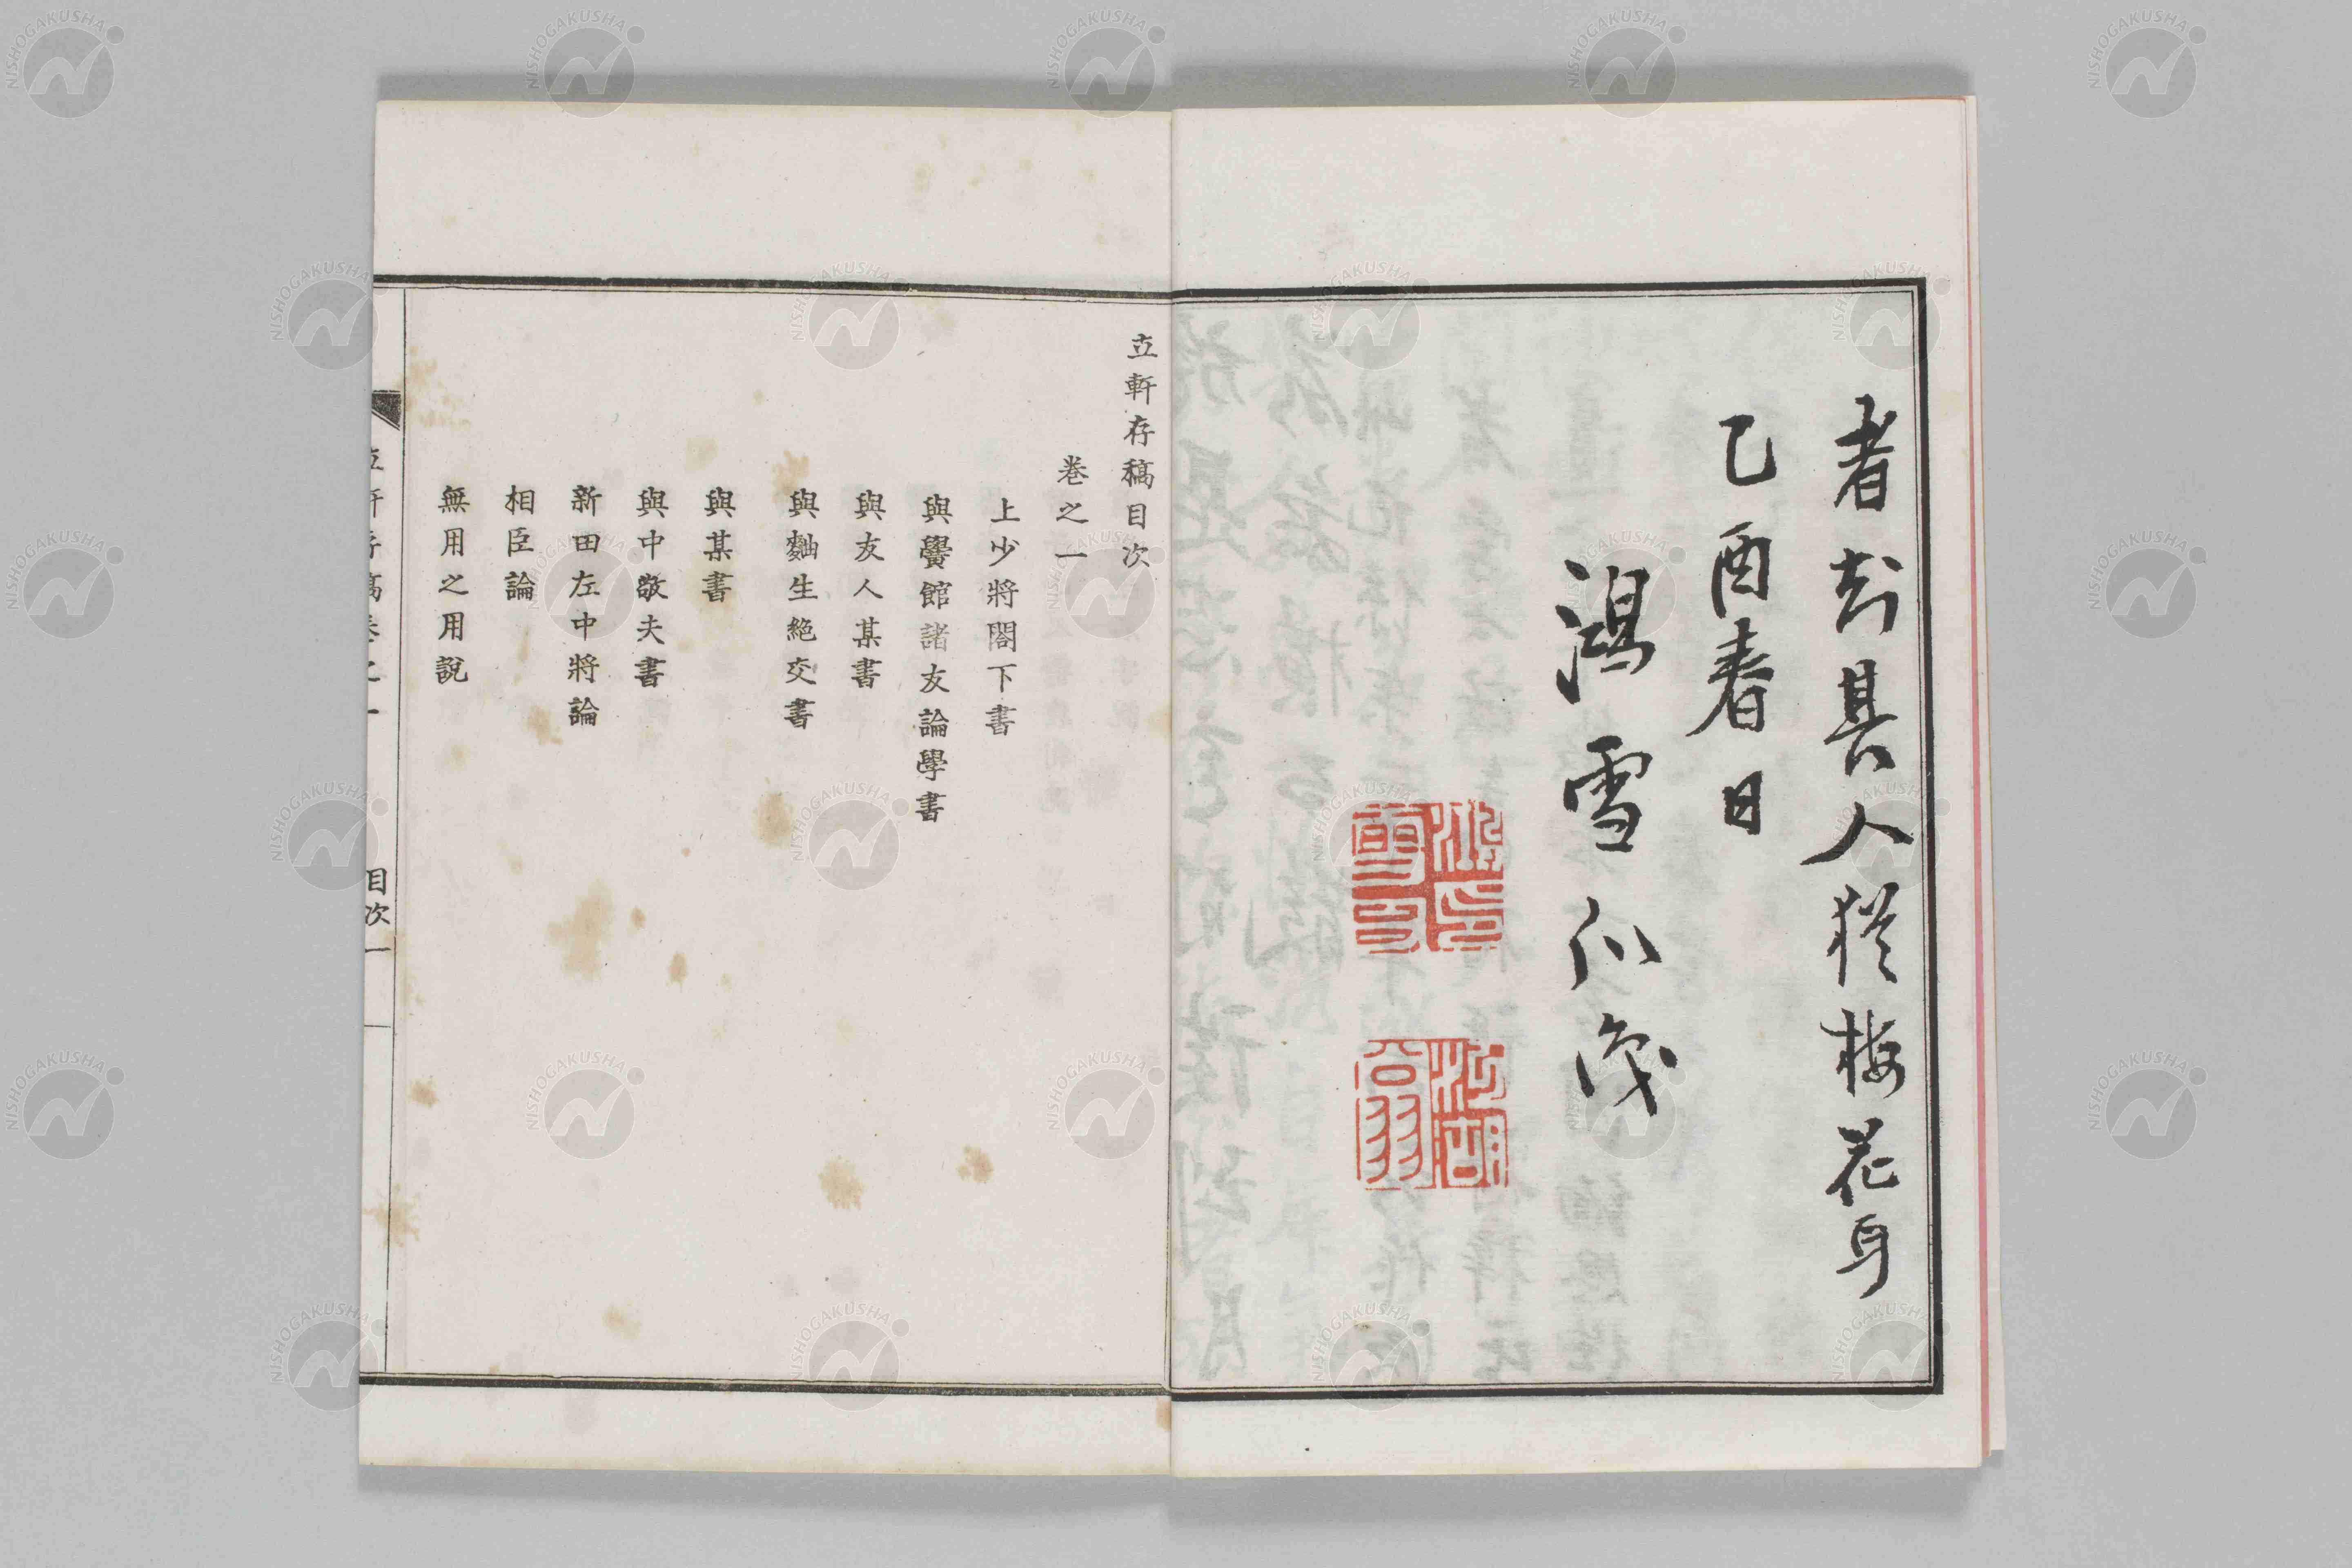 者其人猶梅花耳
乙酉春日
鴻雪爪
江湖翁
立軒存稿目次
卷之一
上少將閤下書
與黌館諸友論學書
與友人某書
與麯生絶交書
與某書
與中敬夫書
新田左中將論
相臣論
無用之用說
立軒存稿卷之一
目次一
NISHOGAKUSHA